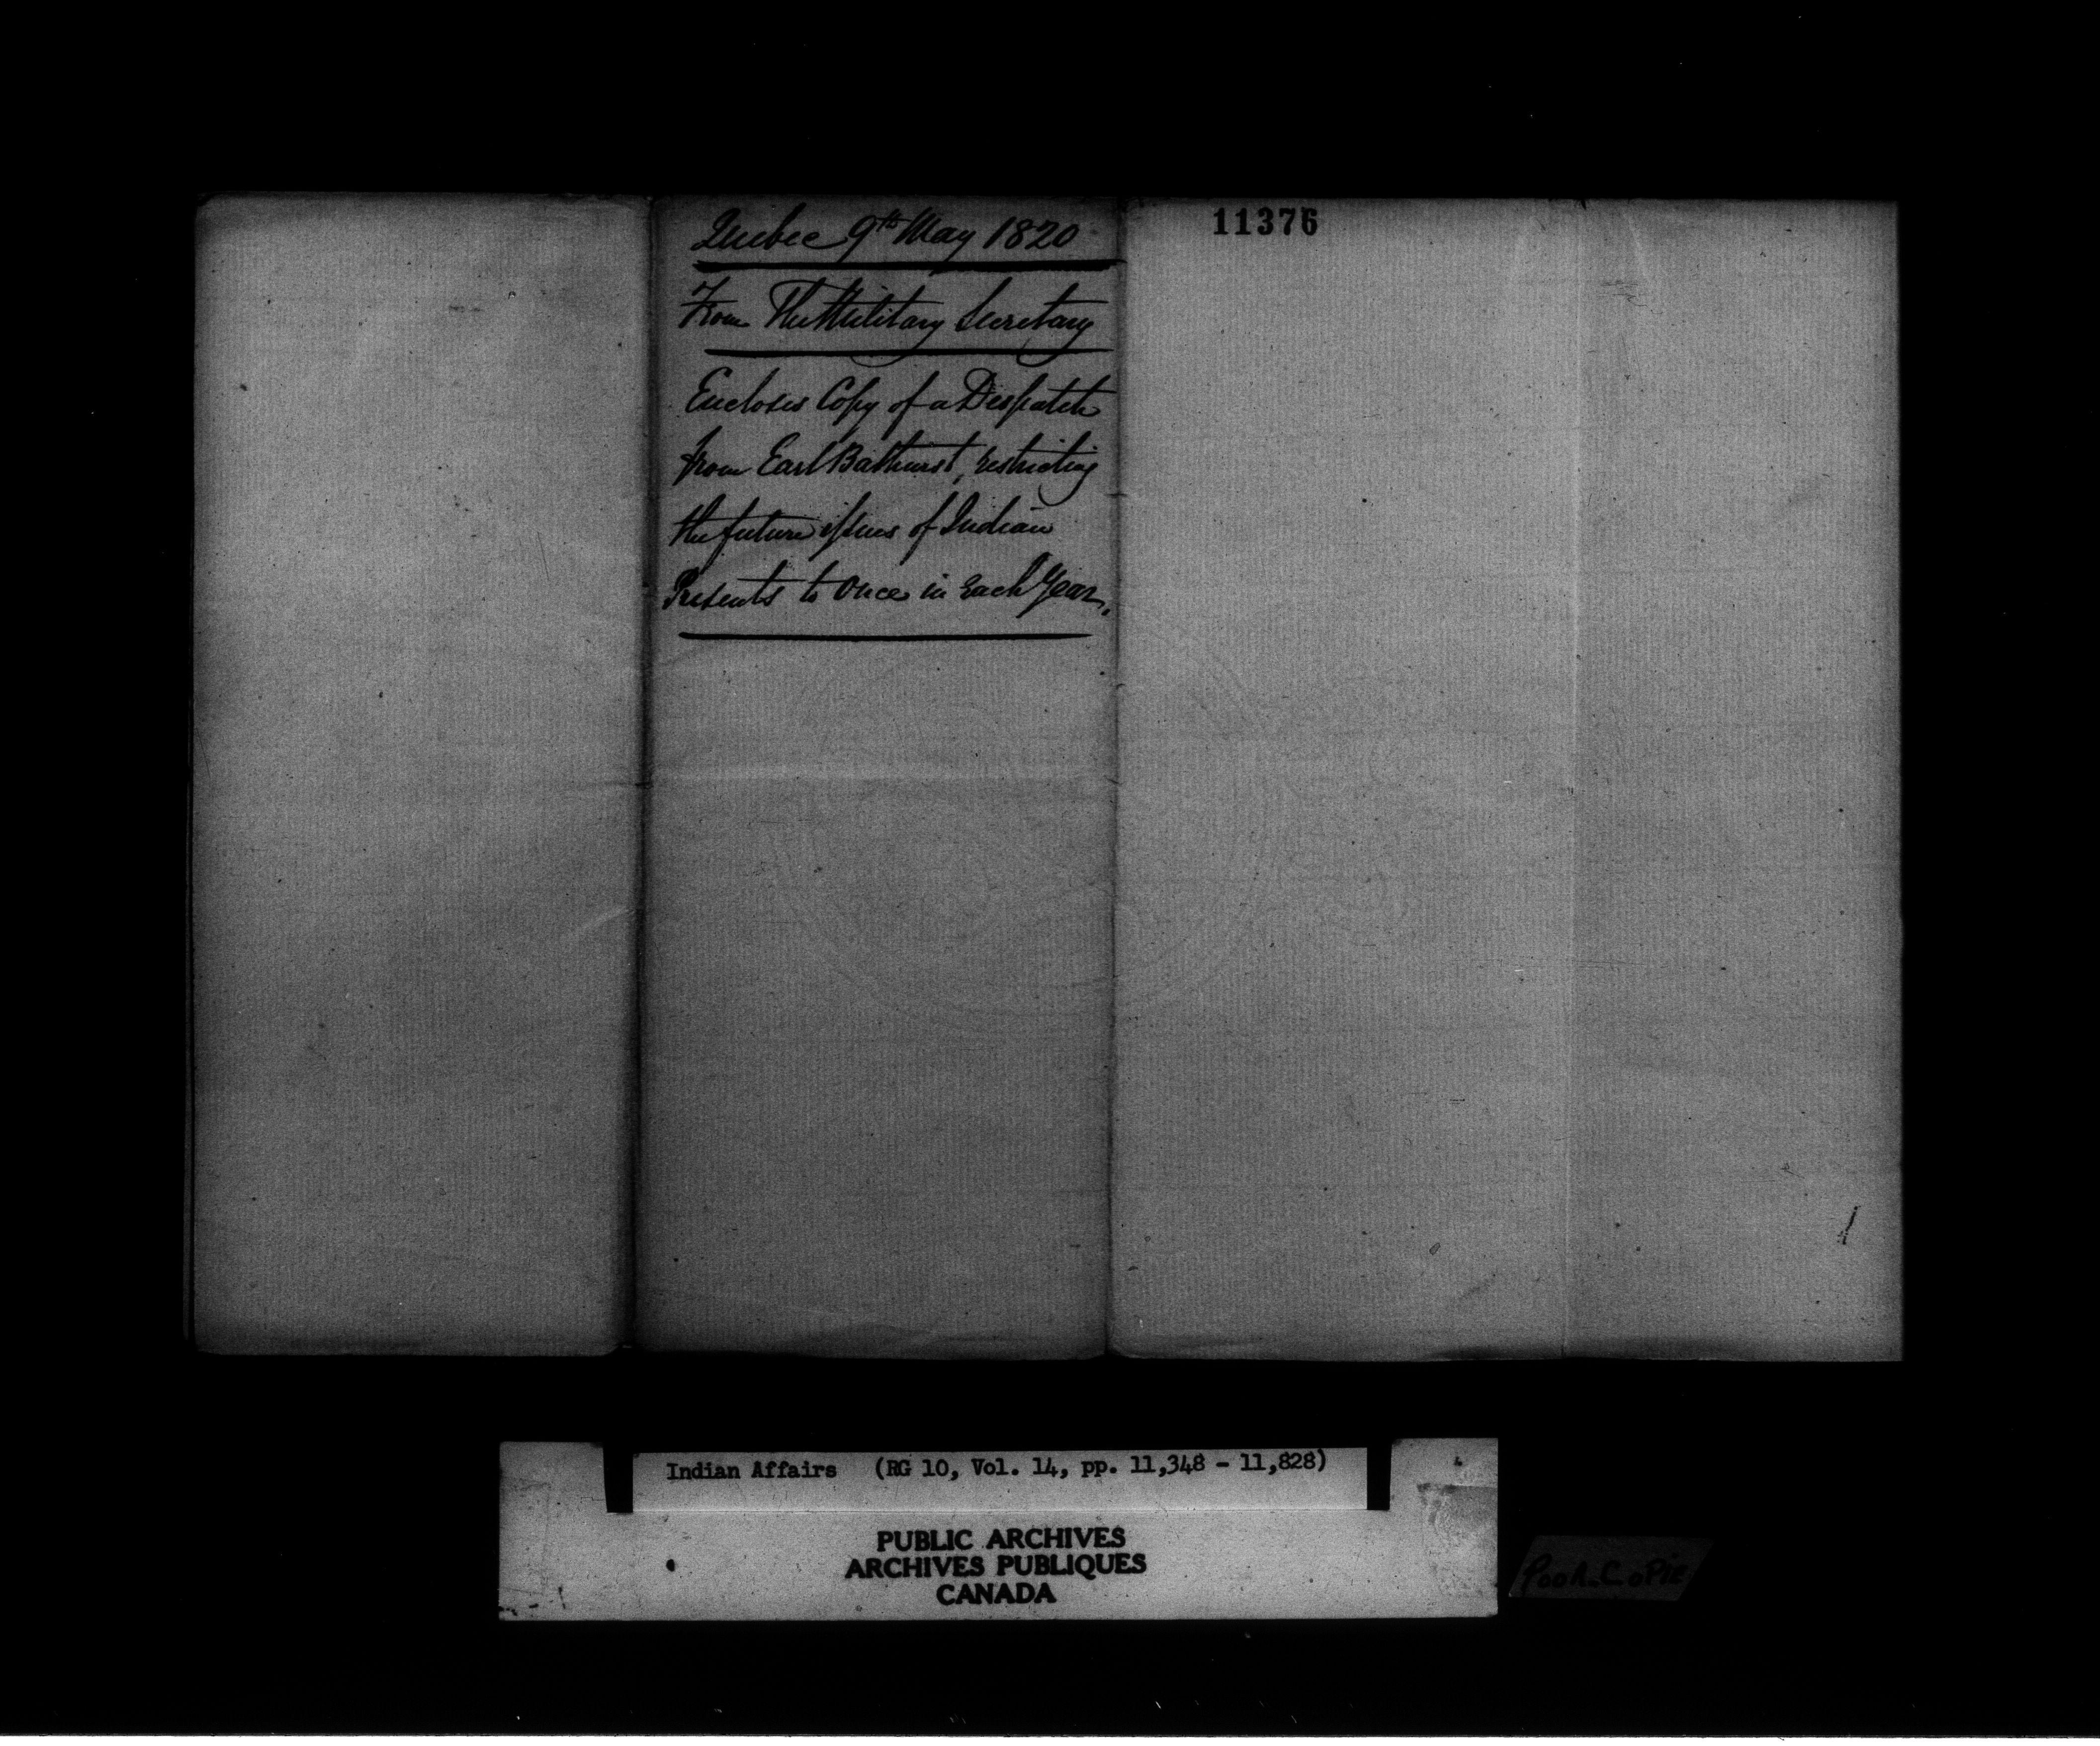 Quebec 9th May 1820
From The Military Secretary
Encloses Copy of a Despatch
from Earl Bathurst, restricting
the future issues of Indian
Presents to Once in Each Year.
11376
Indian Affairs (RG 10, Vol. 14, pp. 11,348 - 11,828)
PUBLIC ARCHIVES
ARCHIVES PUBLIQUES
CANADA
Poor.Copie